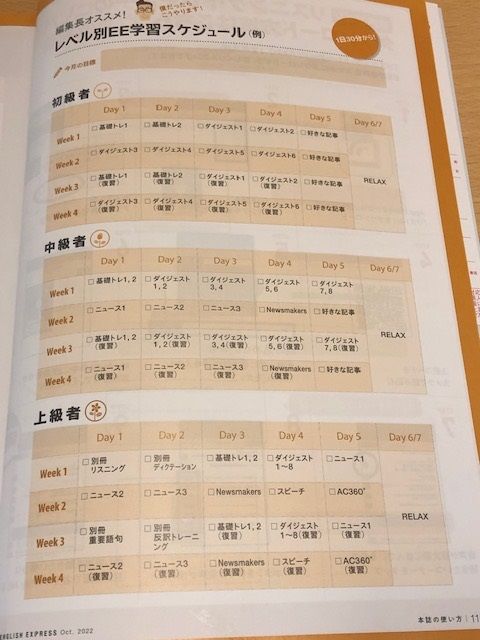 編集長オススメ！
僕だったら
こうやります！
レベル別EE学習スケジュール（例）
1日30分から！
今月の目標
初級者
Day 1 Day 2 Day 3 Day 4 Day 5 Day 6/7
Week 1 □基礎トレ1 □基礎トレ2 □ダイジェスト1 □ダイジェスト2 □好きな記事
Week 2 □ダイジェスト3 □ダイジェスト4 □ダイジェスト5 □ダイジェスト6 □好きな記事
RELAX
Week 3 □基礎トレ1（復習） □基礎トレ2（復習） □ダイジェスト1（復習） □ダイジェスト2（復習） □好きな記事
Week 4 □ダイジェスト3（復習） □ダイジェスト4（復習） □ダイジェスト5（復習） □ダイジェスト6（復習） □好きな記事
中級者
Day 1 Day 2 Day 3 Day 4 Day 5 Day 6/7
Week 1 □基礎トレ1, 2 □ダイジェスト1, 2 □ダイジェスト3, 4 □ダイジェスト5, 6 □ダイジェスト7, 8
Week 2 □ニュース1 □ニュース2 □ニュース3 □Newsmakers □好きな記事
RELAX
Week 3 □基礎トレ1, 2（復習） □ダイジェスト1, 2（復習） □ダイジェスト3, 4（復習） □ダイジェスト5, 6（復習） □ダイジェスト7, 8（復習）
Week 4 □ニュース1（復習） □ニュース2（復習） □ニュース3（復習） □Newsmakers（復習） □好きな記事
上級者
Day 1 Day 2 Day 3 Day 4 Day 5 Day 6/7
Week 1 □別冊リスニング □別冊ディクテーション □基礎トレ1, 2 □ダイジェスト1〜8 □ニュース1
Week 2 □ニュース2 □ニュース3 □Newsmakers □スピーチ □AC360°
RELAX
Week 3 □別冊重要語句 □別冊反訳トレーニング □基礎トレ1, 2（復習） □ダイジェスト1〜8（復習） □ニュース1（復習）
Week 4 □ニュース2（復習） □ニュース3（復習） □Newsmakers（復習） □スピーチ（復習） □AC360°（復習）
ENGLISH EXPRESS Oct. 2022
本誌の使い方 11